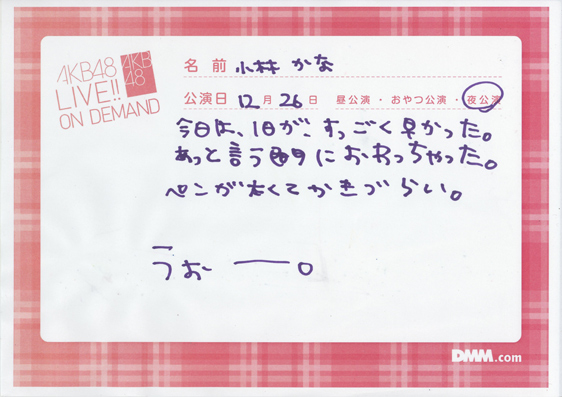 AKB48
LIVE!!
ON DEMAND
AKB
48
名 前 小林 かな
公演日 12 月 26 日 昼公演 ・ おやつ公演 ・ 夜公演
今日は、1日が、すっごく早かった。
あっと言う間におわっちゃった。
ペンが太くてかきづらい。
うおー ー。
DMM.com